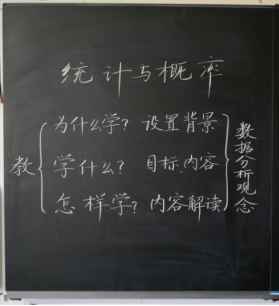 统计与概率
教
为什么学？ 设置背景
学什么？ 目标、内容
怎样学？ 内容解读
数据分析观念